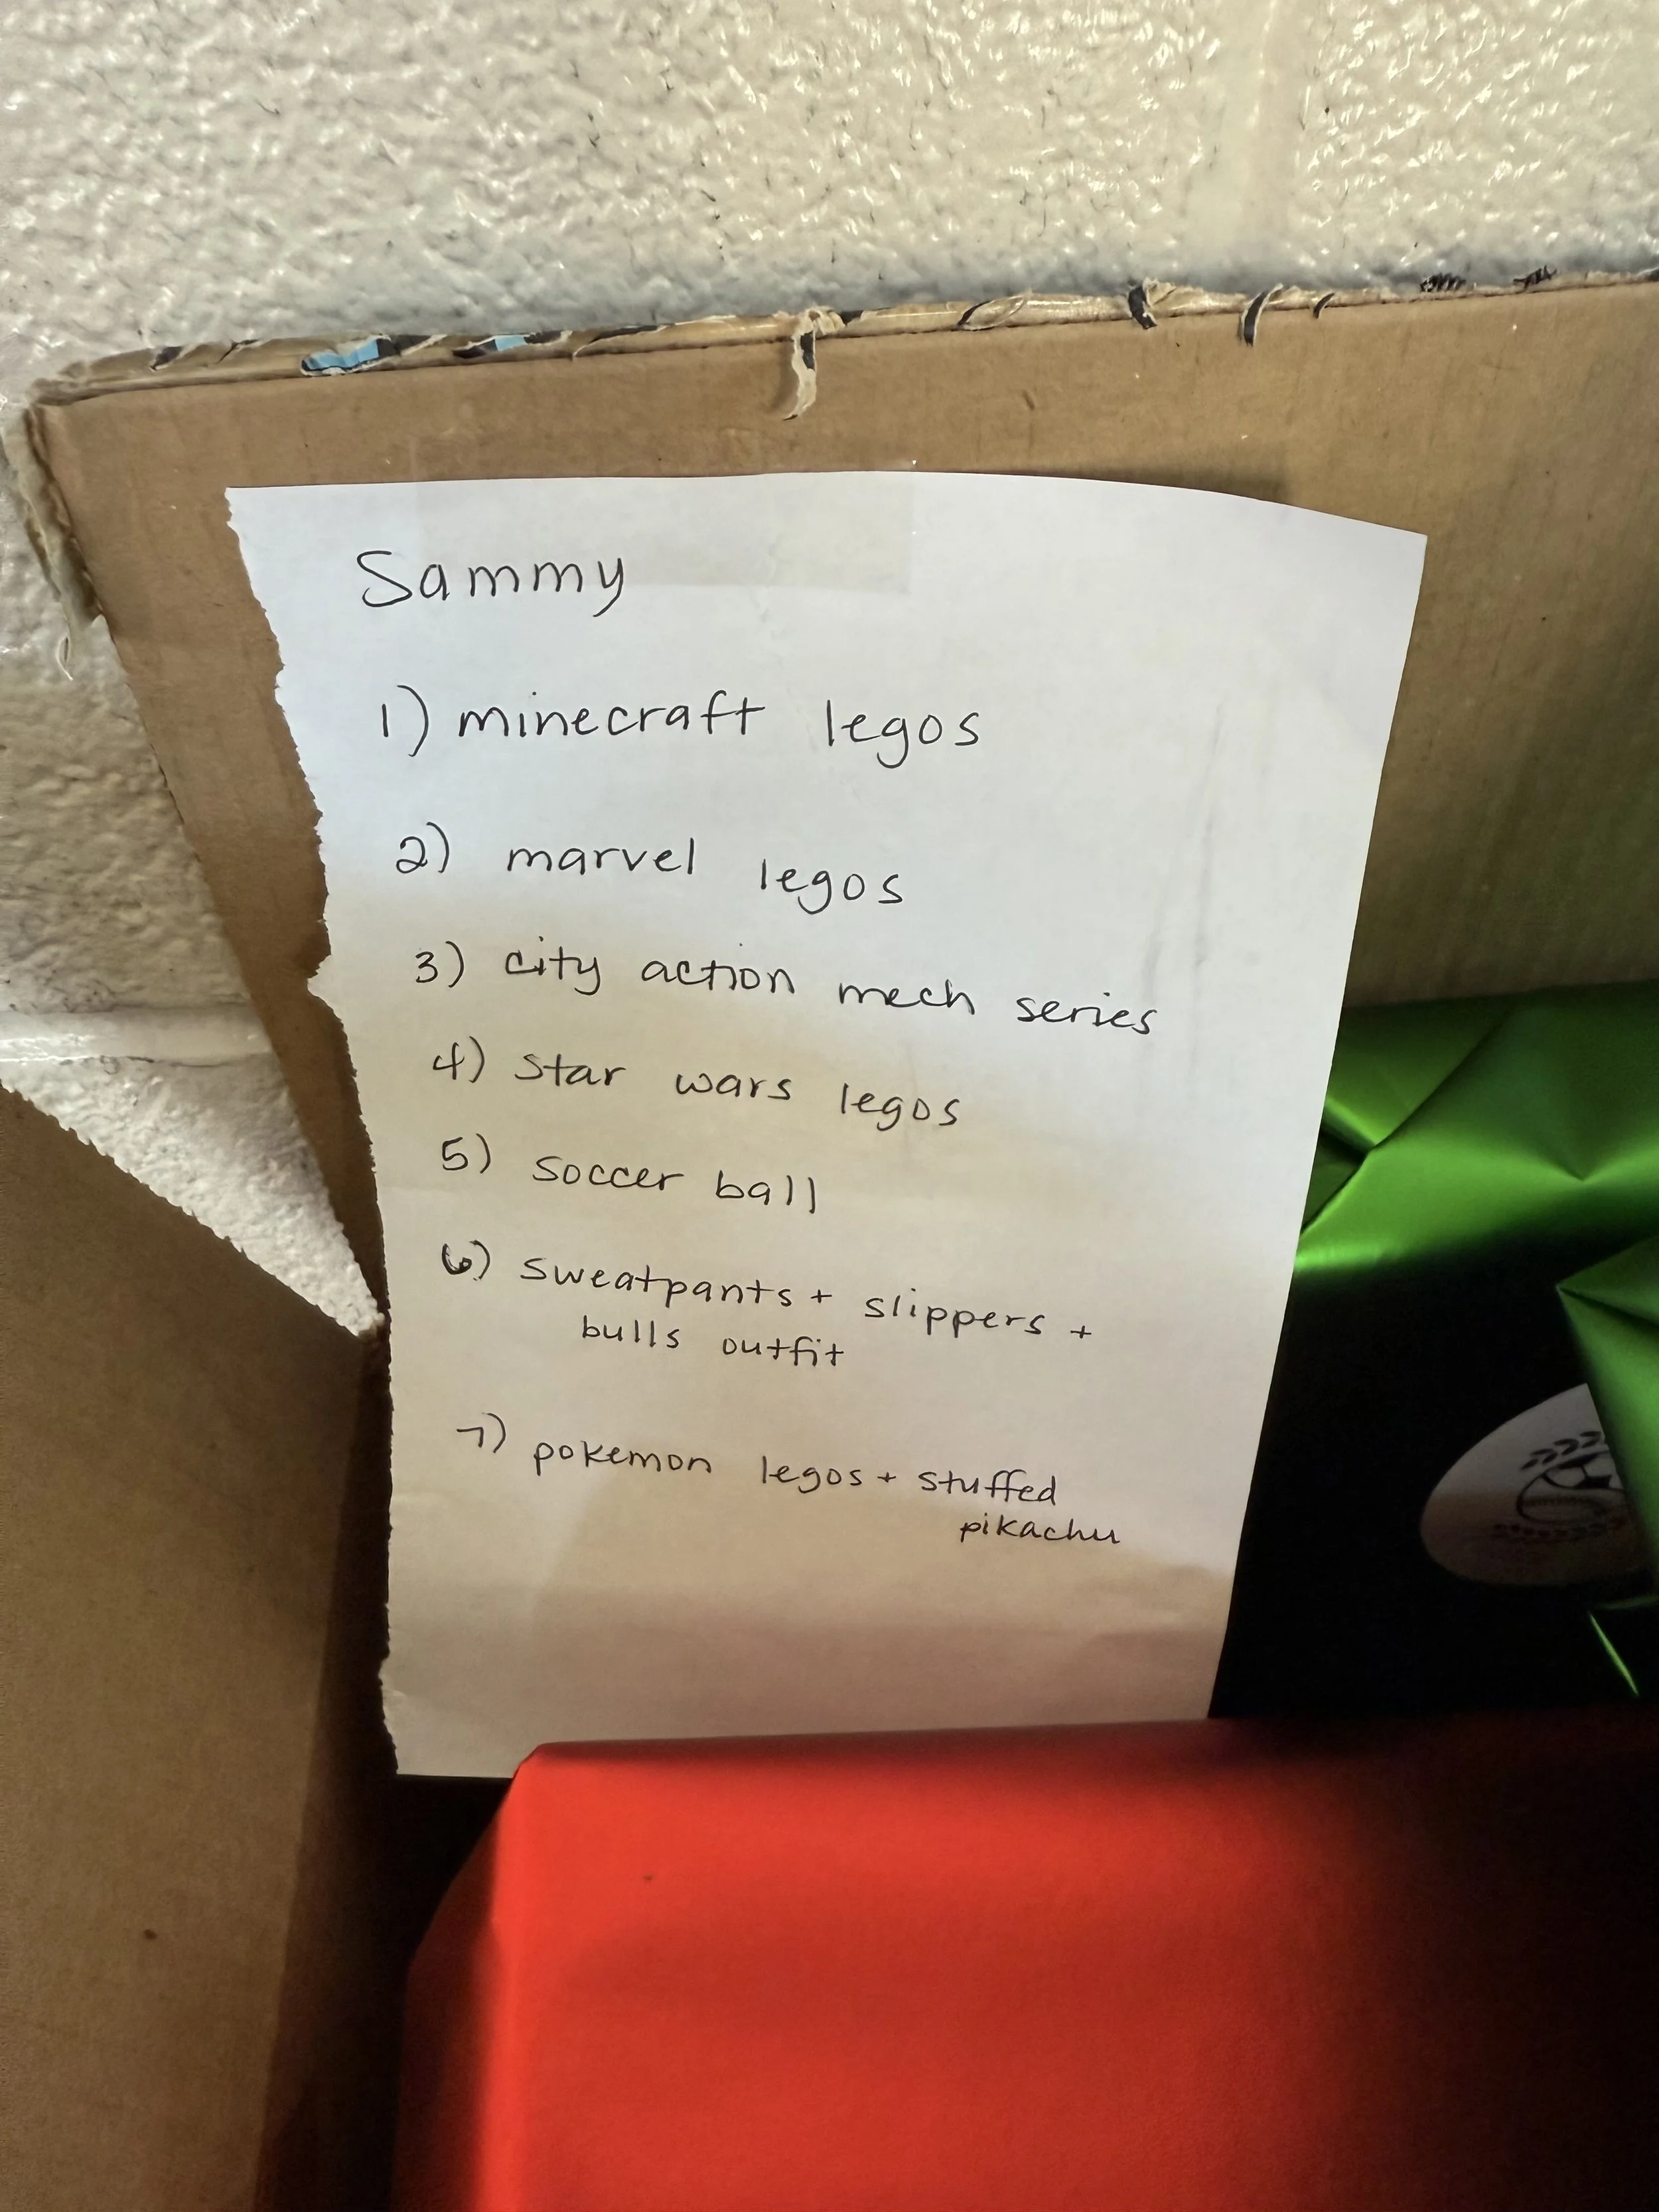 Sammy
1) minecraft legos
2) marvel legos
3) city action mech series
4) star wars legos
5) soccer ball
6) sweatpants + slippers +
bulls outfit
7) pokemon legos + stuffed
pikachu